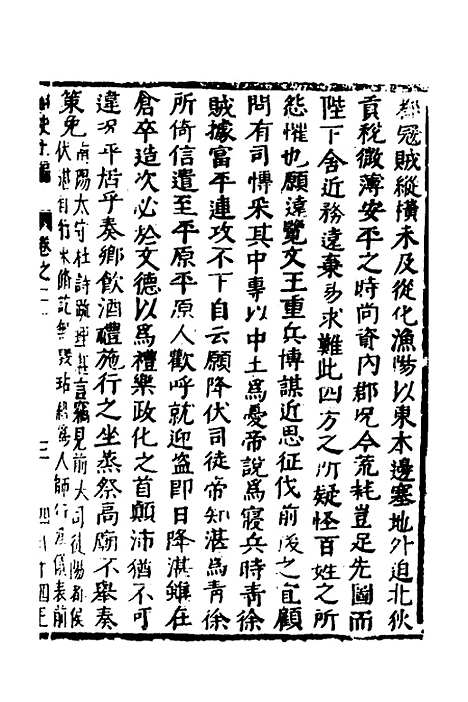 都冠賊縱橫未及從化漁陽以東本邊塞地外迫北狄
貢稅微薄安平之時尚資內郡况今荒耗豈足先圖而
陛下舍近務遠棄易求難此四方之所疑怪百姓之所
怨懼也願遠覽文王重兵博謀近思征伐前後之宜顧
問有司愽采其中專以中土爲憂帝說爲寢兵時青徐
賊據富平連攻不下自云願降伏司徒帝知湛爲青徐
所倚信遣至平原平原人歡呼就迎盜即日降湛雖在
倉卒造次必於文德以爲禮樂政化之首顛沛猶不可
違况平居乎奏鄉飲酒禮施行之坐蒸祭高廟不舉奏
策免南陽太守杜詩疏理其言竊見前大司徒陽都侯
伏湛自行束脩訖無毀玷經爲人師行爲儀表前
卷之二
三